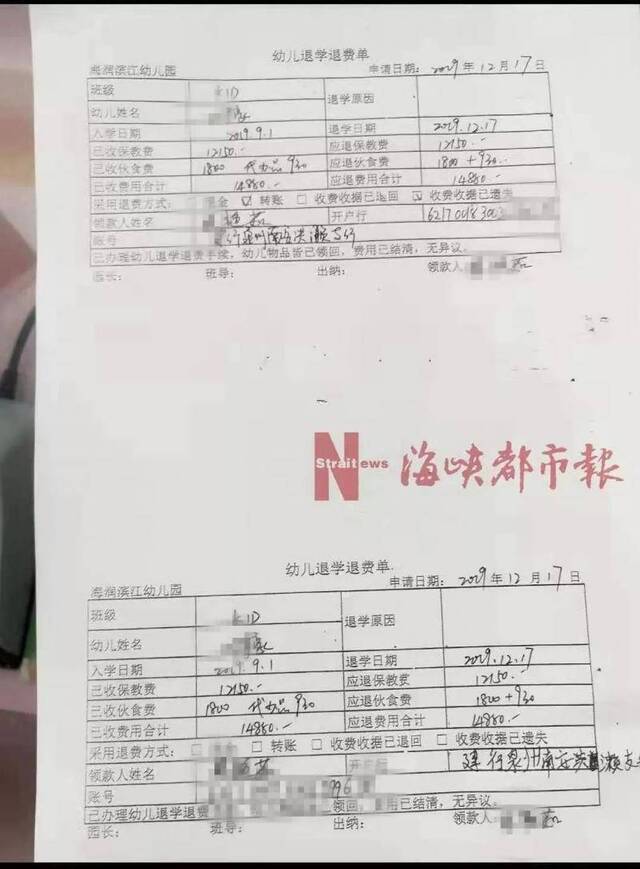 幼儿退学退费单
海润滨江幼儿园 申请日期：2019年12月17日
班级 K1D 退学原因
幼儿姓名
入学日期 2019.9.1 退学日期 2019.12.17
已收保教费 12150.- 应退保教费 12150.-
已收伙食费 1800 代办品930 应退伙食费 1800+930
已收费用合计 14880.- 应退费用合计 14880.-
采用退费方式：□现金 ☑转账 □收费收据已退回 ☑收费收据已遗失
领款人姓名 开户行 62170018300
账号
已办理幼儿退学退费手续，幼儿物品皆已领回，费用已结清，无异议。
园长： 班导： 出纳： 领款人：
N
Straitews
海峡都市報
幼儿退学退费单
海润滨江幼儿园 申请日期：2019年12月17日
班级 K1D 退学原因
幼儿姓名
入学日期 2019.9.1 退学日期 2019.12.17
已收保教费 12150.- 应退保教费 12150.-
已收伙食费 1800 代办品930 应退伙食费 1800+930
已收费用合计 14880.- 应退费用合计 14880.-
采用退费方式：□现金 □转账 □收费收据已退回 □收费收据已遗失
领款人姓名 开户行 建行泉州南安
账号 996
已办理幼儿退学退费 领回，费用已结清，无异议。
园长： 班导： 出纳： 领款人：